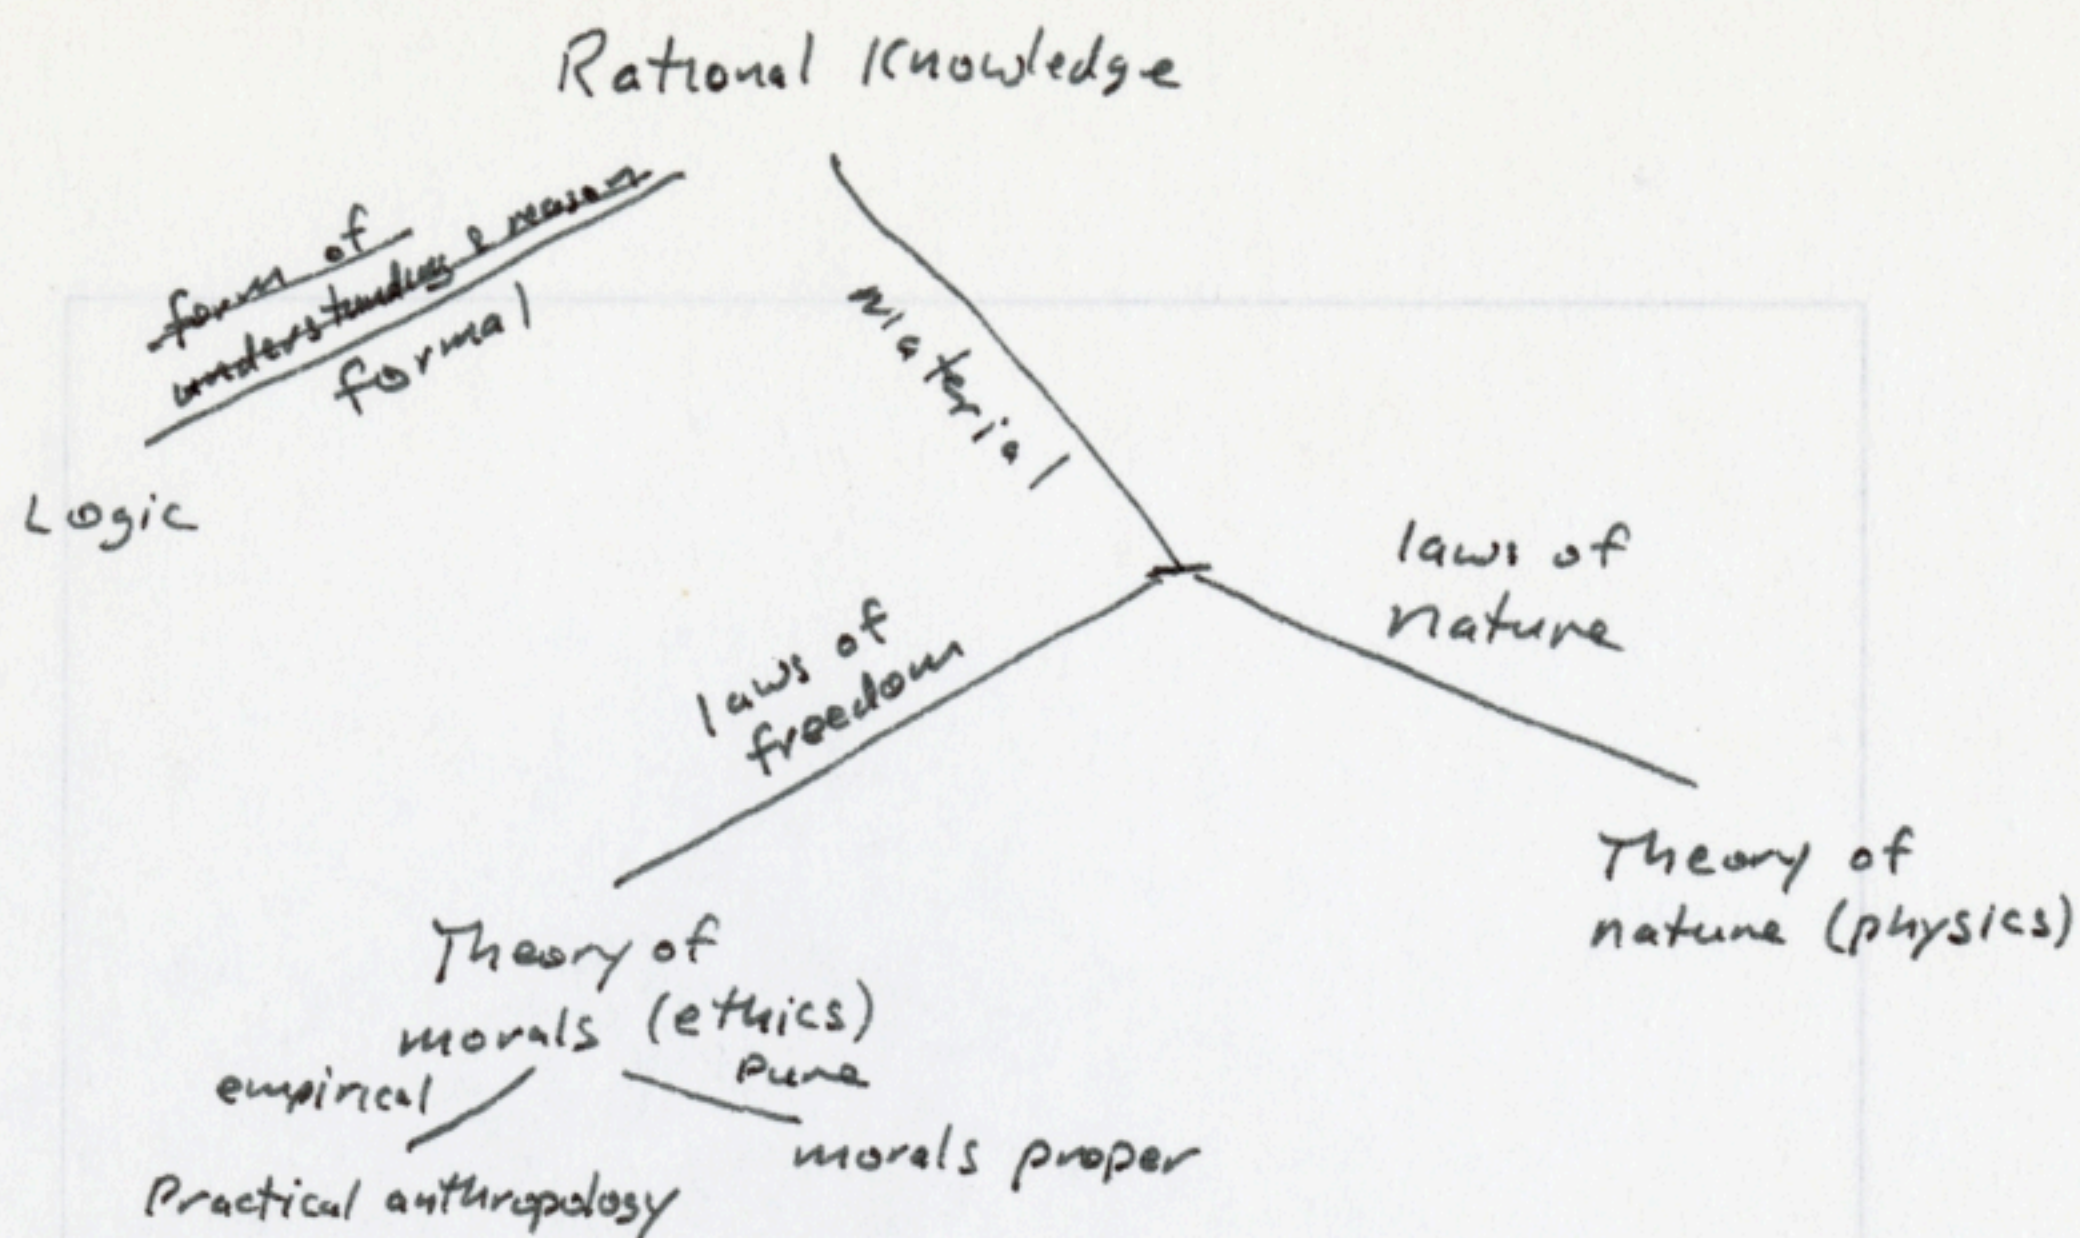 Rational Knowledge
form of
understanding & reason
formal
material
Logic
laws of
nature
laws of
freedom
Theory of
nature (physics)
Theory of
morals (ethics)
empirical
pure
morals proper
Practical anthropology